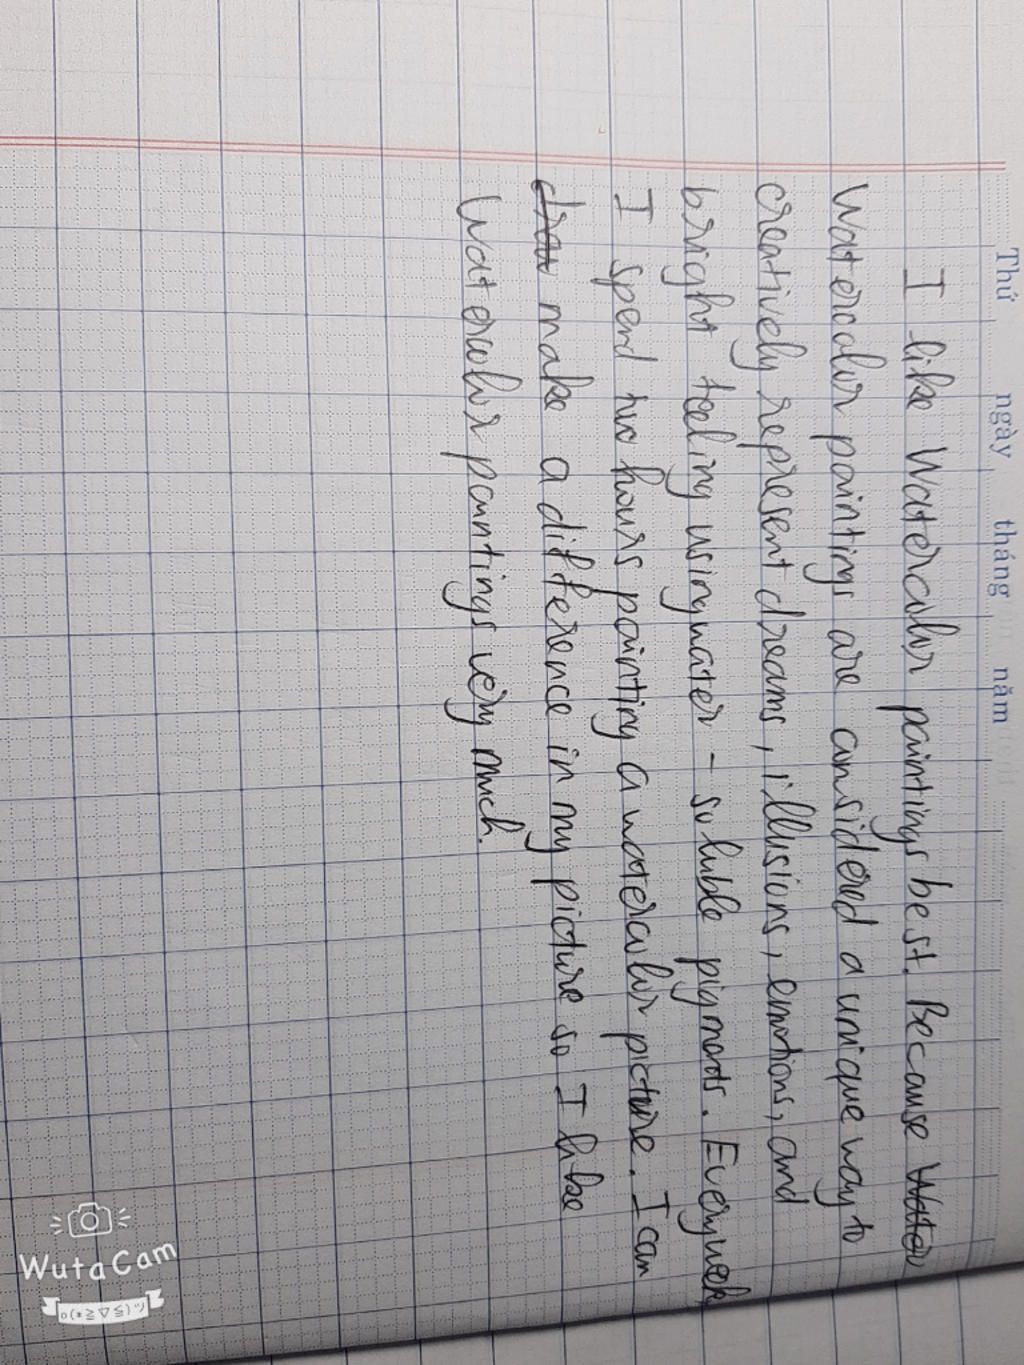 Thứ ngày tháng năm
I like Watercolor paintings best. Because Water
Watercolor paintings are considered a unique way to
creatively represent dreams, illusions, emotions, and
bright feeling using water - soluble pigments. Every week
I spend two hours painting a watercolor picture. I can
draw make a difference in my picture so I like
Watercolor paintings very much.
WutaCam
o(*≧▽≦)ツ